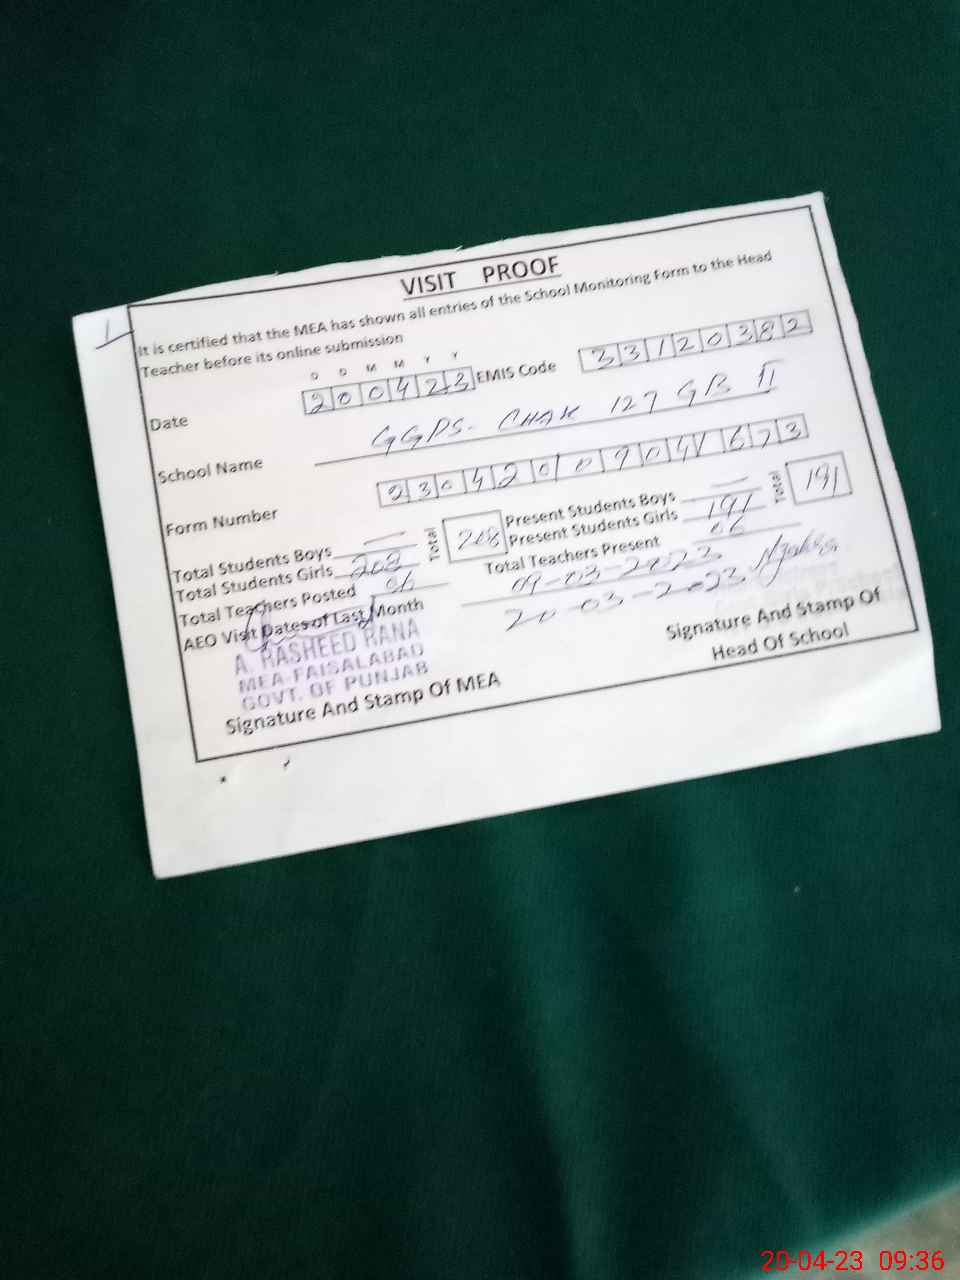 VISIT PROOF
It is certified that the MEA has shown all entries of the School Monitoring Form to the Head
Teacher before its online submission
D D M M Y Y
Date 200423 EMIS Code 33120382
School Name GGPS. CHAK 127 GB II
Form Number 23042009041673
Total Students Boys — Present Students Boys —
Total Students Girls 208 Total 208 Present Students Girls 191 Total 191
Total Teachers Posted 06 Total Teachers Present 06
AEO Visit Dates of Last Month 09-03-2023
20-03-2023
A. RASHEED RANA
MEA-FAISALABAD
GOVT. OF PUNJAB
Signature And Stamp Of MEA
Signature And Stamp Of
Head Of School
20-04-23 09:36